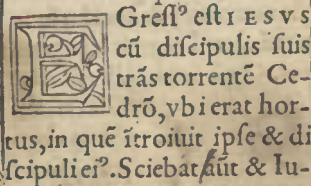 EGreſſꝰ eſt IESVS
cū diſcipulis ſuis
trās torrentē Ce-
drō,vbi erat hor-
tus,in quē ītroiuit ipſe & di
ſcipuli eiꝰ.Sciebat aūt & Iu-